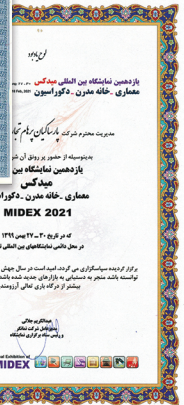 لوح یادبود
یازدهمین نمایشگاه بین المللی میدکس
معماری _ خانه مدرن _ دکوراسیون
Feb, 2021
مدیریت محترم شرکت
بدینوسیله از حضور پر رونق آن
یازدهمین نمایشگاه بین
میدکس
معماری _ خانه مدرن _
MIDEX 2021
که در تاریخ ۳۰ _ ۲۷ بهمن ۱۳۹۹
در محل دائمی نمایشگاههای بین المللی
برگزار گردیده سپاسگزاری می گردد، امید است در سال جهش
توانسته باشد منجر به دستیابی به بازارهای جدید شده باشد
بیشتر از درگاه باری تعالی آرزومند
عبدالکریم جلالی
مدیرعامل شرکت
و رئیس ستاد برگزاری نمایشگاه
Exhibition of
MIDEX